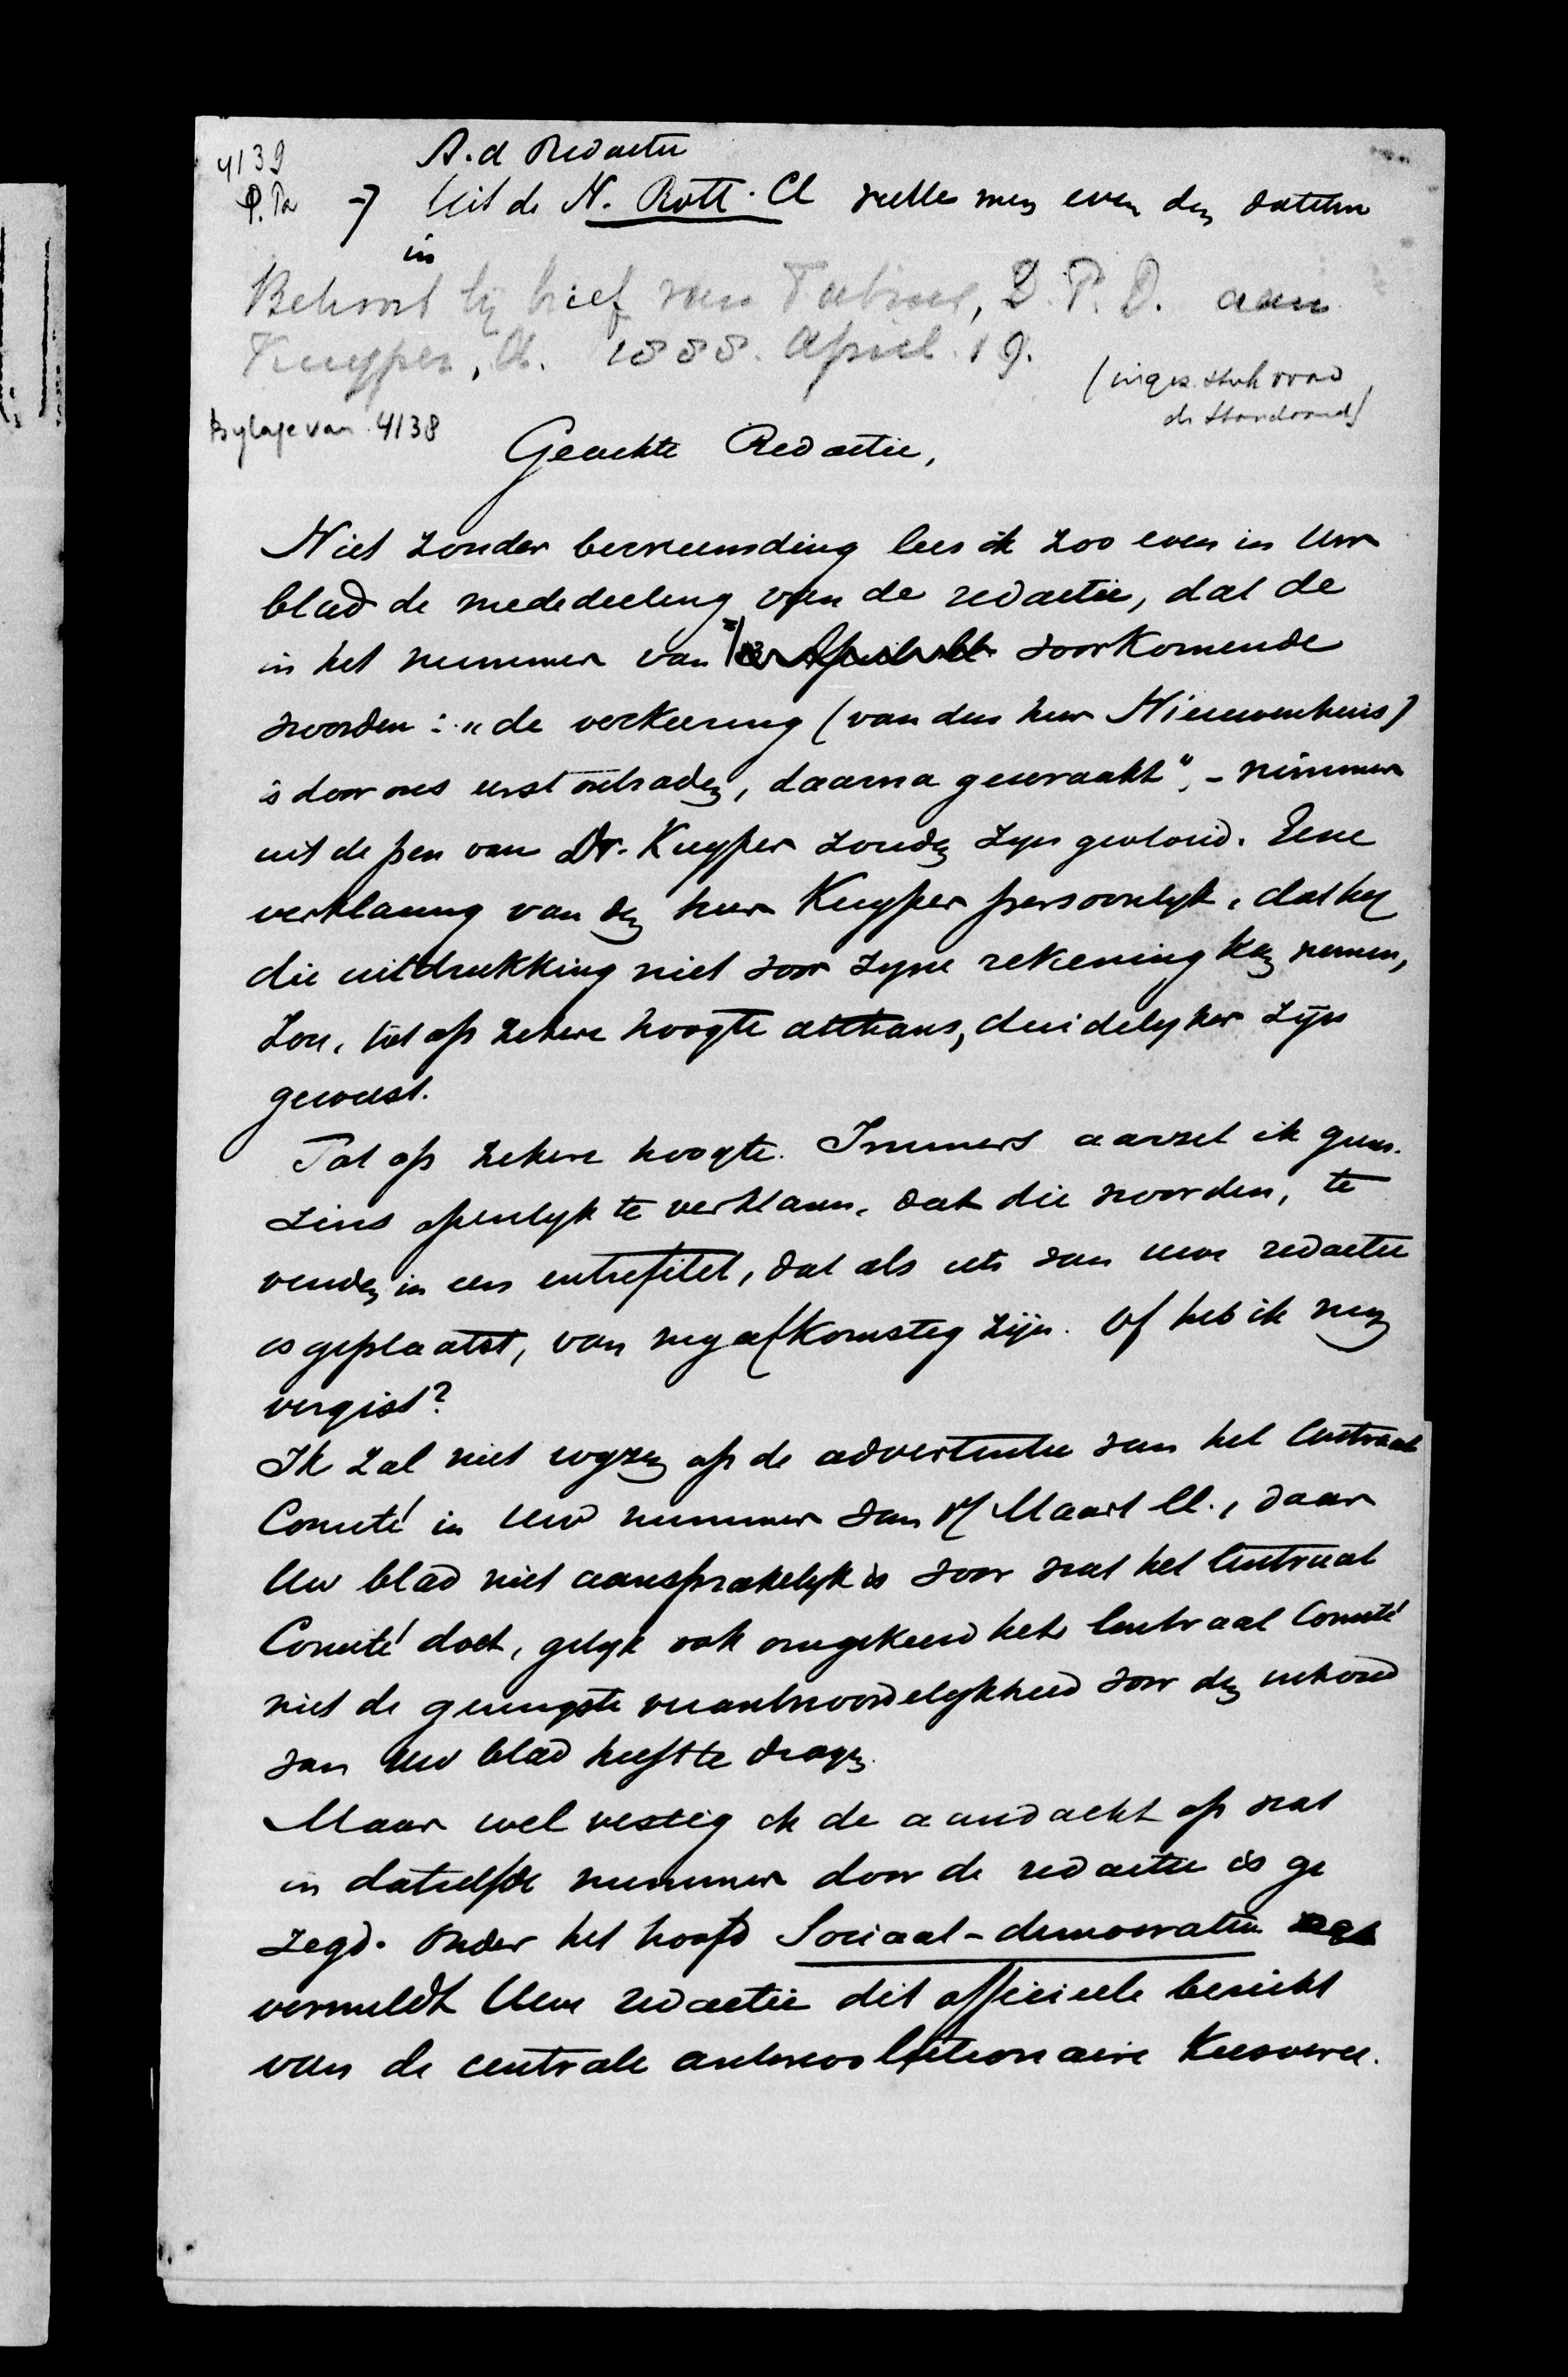 4139
P. Ta
A. d Redactie
→ Uit de N. Rott. Ct vulle men even den datum
in
Behoort bij brief van Fabius, D. P. D. aan
Kuyper, A. 1888. April. 19.
(ingez. stuk voor
de Standaard)
Bylage van 4138
Geachte Redactie,
Niet zonder bevreemding lees ik zoo even in Uw
blad de mededeeling van de redactie, dat de
in het nummer van voorkomende
woorden: "de verkeering (van den heer Nieuwenhuis)
is door ons eerst ontraden, daarna gewraakt", - nimmer
uit de pen van Dr. Kuyper zouden zyn gevloeid. Eene
verklaring van den heer Kuyper persoonlyk, dat hy
die uitdrukking niet voor zyne rekening kan nemen,
zou, tot op zekere hoogte althans, duidelyker zijn
geweest.
Tot op zekere hoogte. Immers aarzel ik geens-
zins openlyk te verklaren, dat die woorden, te
vinden in een entrefilet, dat als iets van uwe redactie
is geplaatst, van my afkomstig zijn. Of heb ik my
vergist?
Ik zal niet wyzen op de advertentie van het Centraal
Comité in Uw nummer van Maart ll., daar
Uw blad niet aansprakelyk is voor wat het Centraal
Comité doet, gelyk ook omgekeerd het Centraal Comité
niet de geringste verantwoordelykheid voor den inhoud
van Uw blad heeft te dragen.
Maar wel vestig ik de aandacht op wat
in datzelfde nummer door de redactie is ge
zegd. Onder het hoofd Sociaal-democratie
vermeldt Uwe redactie dit officieele bericht
van de centrale antirevolutionaire Kiesveree.